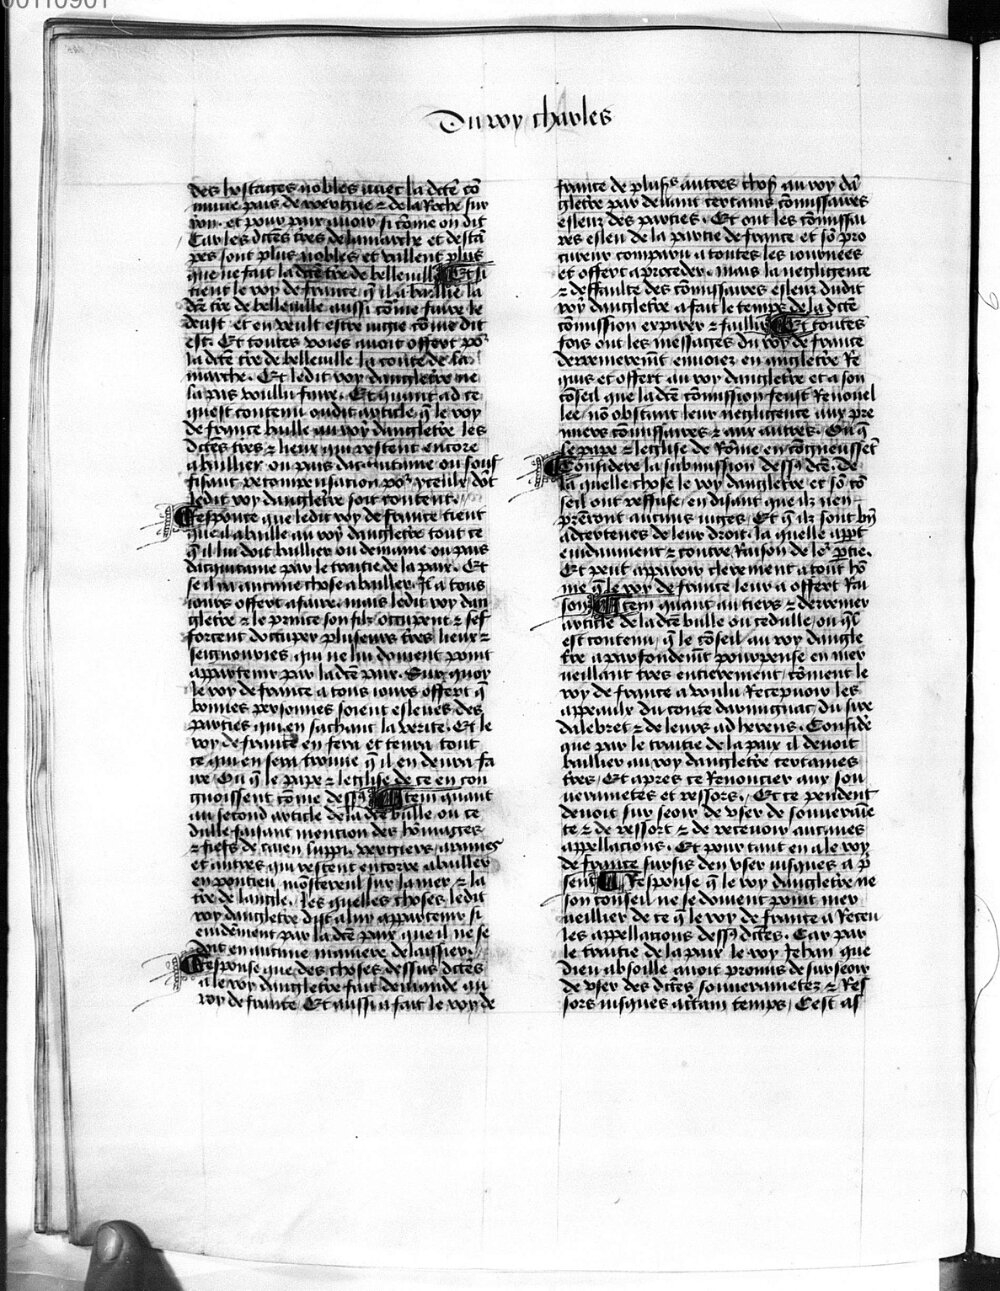 00110901
Du roy charles
des hostages nobles avec la dcte co
mune pais de rouergue ⁊ de la Roche sur
yon. et pour paix avoir si come on dit
Car les dctes tres de la marche et
pes sont plus nobles et vaillent plus
que ne fait la dcte tre de belleville Et si
tient le roy de france q il a baillie la
dcte tre de belleville aussi come faire le
deust et en veult estre iugie come dit
est. Et toutes voies avoit offert po
la dcte tre de belleville la conte de la
marche. Et ledit roy dangletre ne
la pas voullu faire. Et quant ad ce
quest contenu oudit article q le roy
de france baille au roy dangletre les
dictes tres ⁊ lieux qui restent encore
a baillier ou pais dacquitaine ou souf
fisant recompensation po ycelle dot
ledit roy dangletre soit content.
Response que ledit roy de france tient
que il a baille au roy dangletre tout ce
q il lui doit baillier ou demaine ou pais
dacquitaine par le traitie de la paix. Et
se il y a aucune chose a baillier. Il a tous
iours offert a faire. mais ledit roy dan
gletre ⁊ le prince son filz occupent ⁊ sef
forcent doccuper plusieurs tres lieux ⁊
seignouries qui ne lui doivent point
appartenir par la dcte paix. Sur quoy
le roy de france a tous iours offert q
bonnes personnes soient esleues des
parties qui en sachant la verite. Et le
roy de france en fera et tenra tout
ce qui en sera trouve q il en devra fa
ire. Ou q le pape ⁊ leglise de ce en con
gnoissent come dess Item quant
au second article de la dcte bulle ou ce
dulle faisant mention des homages
⁊ fiefs de
et autres qui restent encore a baillier
en pontieu mostereul sur la mer ⁊ la
tre de langle. les quelles choses ledit
roy dangletre dist a luy appartenir si
evidement par la dcte paix que il ne se
doit en aucune maniere delaissier
Response que des choses dessus dictes
a le roy dangletre fait demande au
roy de france Et aussi a fait le roy de
france de plus autres chos au roy dan
gletre par devant certains comissaires
esleuz des parties. Et ont les comissai
res esleu de la partie de france et so pro
cureur comparu a toutes les iournees
et offert a proceder. mais la negligence
⁊ deffaulte des comissaires esleuz dudit
roy dangletre a fait le temps de la dcte
comission expirer ⁊ faillir Et toutes
fois ont les messages du roy de france
derrenierement envoiez en angletre Re
quis et offert au roy dangletre et a son
coseil que la dcte comission feust Renouvel
lee no obstant leur negligence aux pre
miers comissaires ⁊ aux autres. Ou q
le pape ⁊ leglise de Rome en congneussent
Considere la submission dess dcte. de
la quelle chose le roy dangletre et so co
seil ont reffuse, en disant que ilz nen
prenront aucuns iuges. Et q ilz sont bn
acertenes de leur droit. la quelle appt
evidanment ⁊ contre Raison de le ptie.
Et peut apparoir clerement a tout ho
me q le roy de france leur a offert Rai
son Item quant au tiers ⁊ derrenier
article de la dcte bulle ou cedulle, ou ql
est contenu, q le coseil au roy dangle
tre a parfondemt pourpense en mer
veillant tres entierement, coment le
roy de france a voulu Recepvoir les
appeaulx du conte darmignac, du sire
dalebret ⁊ de leurs adherens. Conside
que par le traitie de la paix il devoit
baillier au roy dangletre certaines
tres, Et apres ce Renoncier aux sou
verainetes et ressors. Et ce pendent
devoit sur seoir de vser de souveraine
te ⁊ de ressort ⁊ de recevoir aucunes
appellacions. Et pour tant en a le roy
de france sursis den vser iusques a p
sent Response q le roy dangletre ne
son conseil ne se doivent point mer
veillier de ce q le roy de france a Receu
les appellacions dess dctes. Car par
le traitie de la paix le roy Jehan que
dieu absoille avoit promis de surseoir
de vser des dctes souverainetez ⁊ Res
sors iusques a certain temps, Cest as